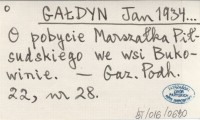 GAŁDYN Jan 1934...
O pobycie Marszałka Pił-
sudskiego we wsi Buko-
winie. — Gaz. Podh.
22, nr 28.